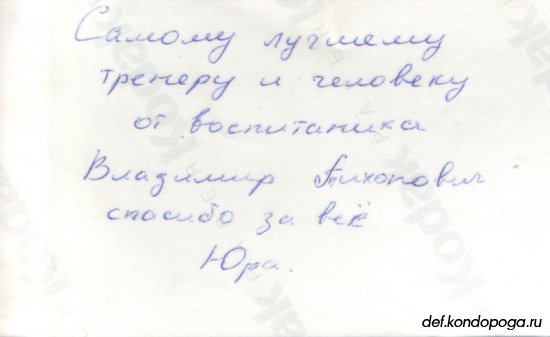 Самому лучшему
тренеру и человеку
от воспитаника
Владимир Тихонович
спасибо за всё
Юра.
def.kondopoga.ru